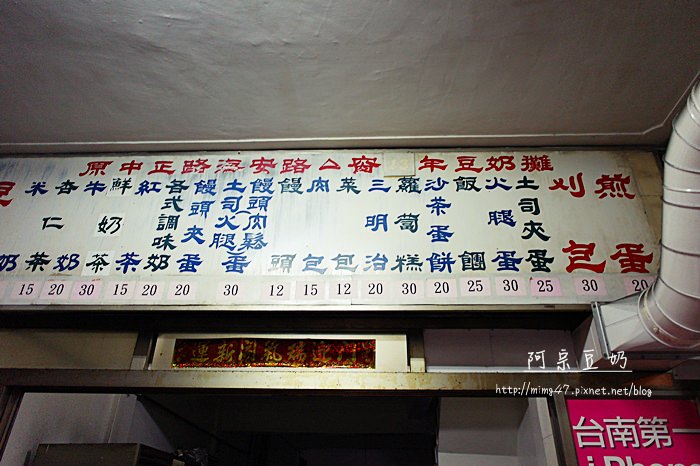 原中正路海安路
年豆奶攤
米奶
杏仁茶
牛奶
鮮奶茶
紅茶
各式調味奶
饅頭夾蛋
土司(火腿)
饅頭(肉鬆)蛋
饅頭
肉包
菜包
三明治
蘿蔔糕
沙茶蛋餅
飯糰
火腿蛋
土司夾蛋
刈包
煎蛋
15 20 30 15 20 20 30 12 15 12 20 20 20 25 30 25 30 20
阿宗豆奶
http://mimg47.pixnet.net/blog
台南第一
iPhon